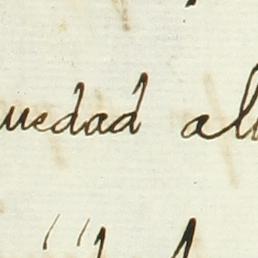 uedad al